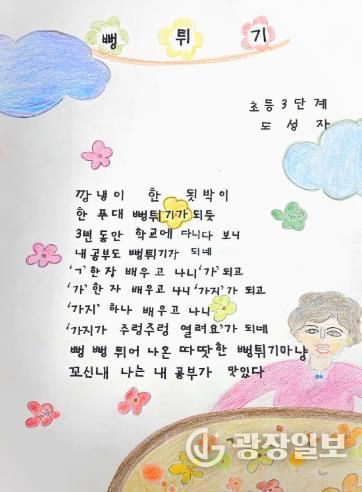 뻥 튀 기
초등3단계
도성자
깡냉이 한 됫박이
한 푸대 뻥튀기가 되듯
3번 동안 학교에 다니다 보니
내 공부도 뻥튀기가 되네
'ㄱ' 한 자 배우고 나니 '가' 되고
'가' 한 자 배우고 나니 '가지'가 되고
'가지' 하나 배우고 나니
'가지가 주렁주렁 열려요'가 되네
뻥 뻥 튀어 나온 따땃한 뻥튀기마냥
꼬신내 나는 내 공부가 맛있다
광장일보